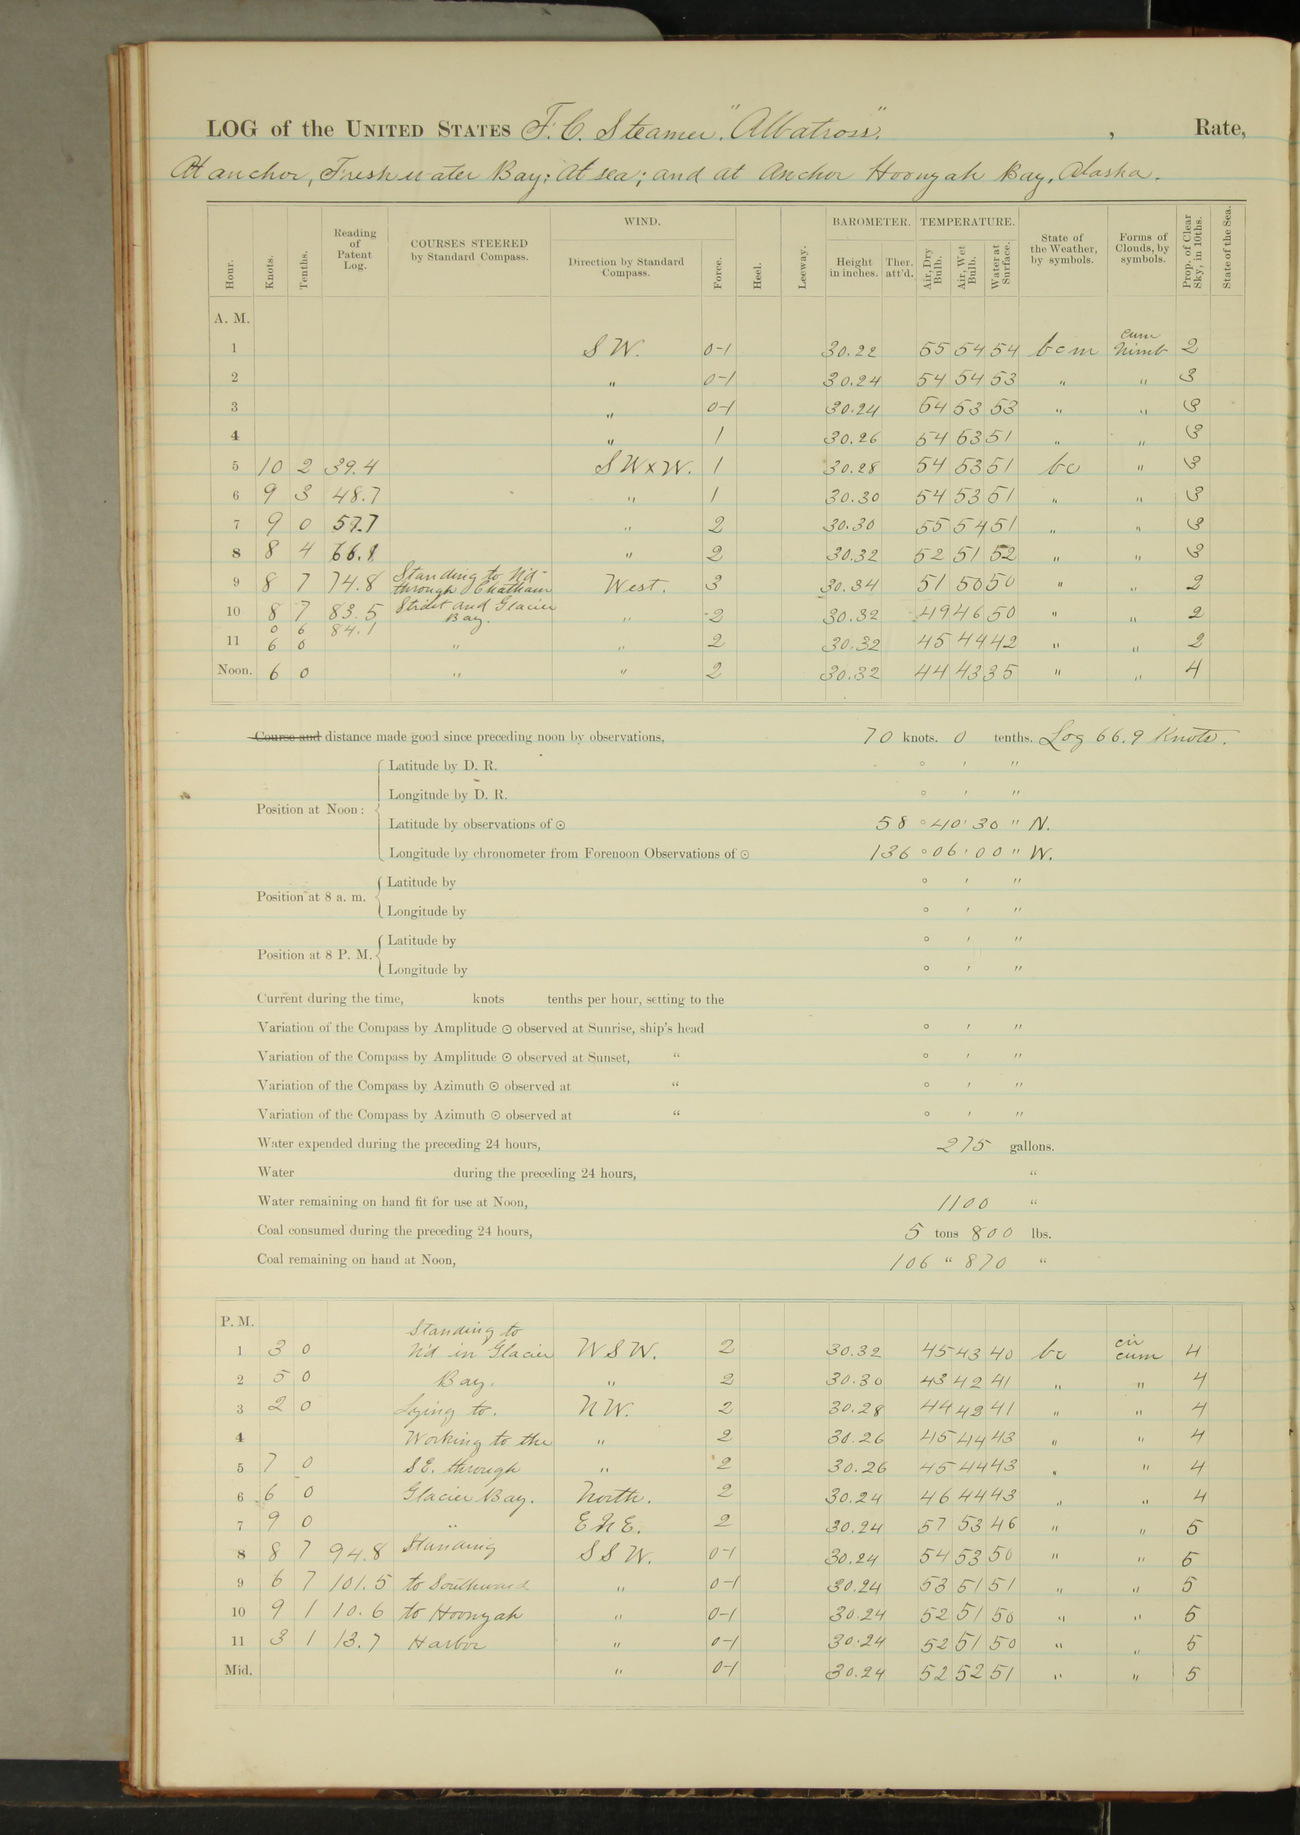 LOG of the UNITED STATES F. C. Steamer "Albatross". , Rate,
At anchor, Freshwater Bay; At sea; and at Anchor Hoonyah Bay, Alaska.
Hour. Knots. Tenths. Reading of Patent Log. COURSES STEERED by Standard Compass. WIND. Direction by Standard Compass. Force. Heel. Leeway. BAROMETER. Height in inches. Ther. att'd. TEMPERATURE. Air, Dry Bulb. Air, Wet Bulb. Water at Surface. State of the Weather, by symbols. Forms of Clouds, by symbols. Prop. of Clear Sky, in 10ths. State of the Sea.
A. M.
1 SW. 0-1 30.22 55 54 54 bcm cum Nimb 2
2 " 0-1 30.24 54 54 53 " " 3
3 " 0-1 30.24 54 53 53 " " 3
4 " 1 30.26 54 53 51 " " 3
5 10 2 39.4 SWxW. 1 30.28 54 53 51 bc " 3
6 9 3 48.7 " 1 30.30 54 53 51 " " 3
7 9 0 57.7 " 2 30.30 55 54 51 " " 3
8 8 4 66.1 " 2 30.32 52 51 52 " " 3
9 8 7 74.8 Standing to N'd through Chatham West. 3 30.34 51 50 50 " " 2
10 8 7 83.5 Strait and Glacier Bay. " 2 30.32 49 46 50 " " 2
0 6 84.1
11 6 0 " " 2 30.32 45 44 42 " " 2
Noon. 6 0 " " 2 30.32 44 43 35 " " 4
Course and distance made good since preceding noon by observations, 70 knots. 0 tenths. Log 66.9 Knots.
Latitude by D. R. ° ' "
Longitude by D. R. ° ' "
Position at Noon:
Latitude by observations of ⊙ 58 ° 40 ' 30 " N.
Longitude by chronometer from Forenoon Observations of ⊙ 136 ° 06 ' 00 " W.
Position at 8 a. m. Latitude by ° ' "
Longitude by ° ' "
Position at 8 P. M. Latitude by ° ' "
Longitude by ° ' "
Current during the time, knots tenths per hour, setting to the
Variation of the Compass by Amplitude ⊙ observed at Sunrise, ship's head ° ' "
Variation of the Compass by Amplitude ⊙ observed at Sunset, " ° ' "
Variation of the Compass by Azimuth ⊙ observed at " ° ' "
Variation of the Compass by Azimuth ⊙ observed at " ° ' "
Water expended during the preceding 24 hours, 275 gallons.
Water during the preceding 24 hours, "
Water remaining on hand fit for use at Noon, 1100 "
Coal consumed during the preceding 24 hours, 5 tons 800 lbs.
Coal remaining on hand at Noon, 106 " 870 "
P. M.
1 3 0 Standing to N'd in Glacier WSW. 2 30.32 45 43 40 bc cir cum 4
2 5 0 Bay. " 2 30.30 43 42 41 " " 4
3 2 0 Lying to. NW. 2 30.28 44 43 41 " " 4
4 Working to the " 2 30.26 45 44 43 " " 4
5 7 0 SE. through " 2 30.26 45 44 43 " " 4
6 6 0 Glacier Bay. North. 2 30.24 46 44 43 " " 4
7 9 0 " ENE. 2 30.24 57 53 46 " " 5
8 8 7 94.8 Standing SSW. 0-1 30.24 54 53 50 " " 5
9 6 7 101.5 to Southward " 0-1 30.24 53 51 51 " " 5
10 9 1 10.6 to Hoonyah " 0-1 30.24 52 51 50 " " 5
11 3 1 13.7 Harbor " 0-1 30.24 52 51 50 " " 5
Mid. " 0-1 30.24 52 52 51 " " 5